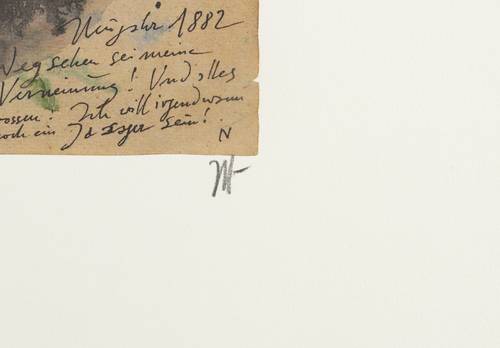 Neujahr 1882
Wegsehen sei meine
Verneinung! Und alles
ossen: Ich will irgendwann
noch ein Ja-sager sein!
N